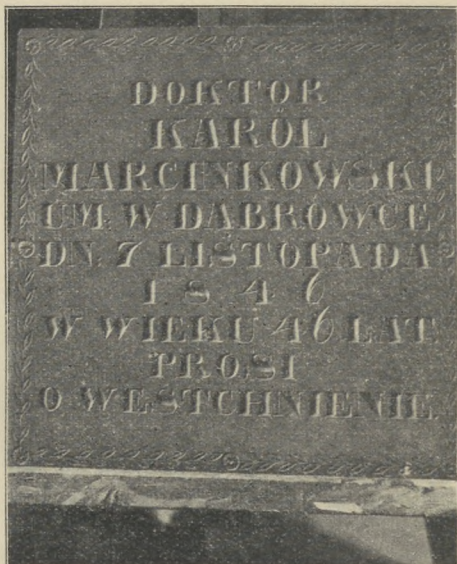 DOKTOR
KAROL
MARCINKOWSKI
UM. W DĄBRÓWCE
DN. 7 LISTOPADA
1846
W WIEKU 46 LAT.
PROSI
O WESTCHNIENIE.